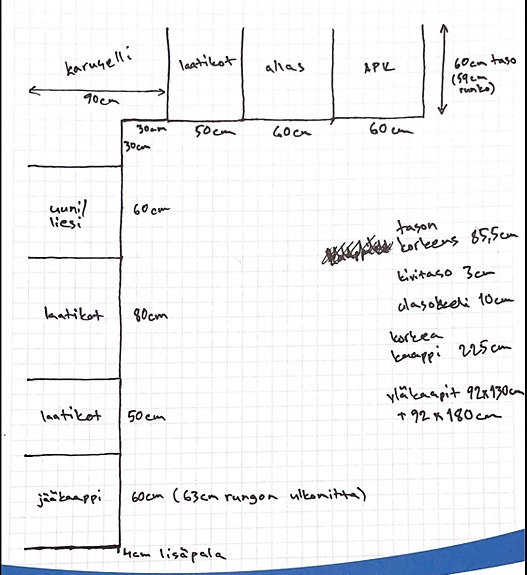 karuselli
90cm
laatikot
allas
APK
60cm taso
(59cm
runko)
30cm
50cm
60cm
60cm
30cm
uuni/
liesi
60cm
tason
korkeus 85,5cm
kivitaso 3cm
alasokkeli 10cm
korkea
kaappi 225cm
yläkaapit 92x130cm
+ 92x180cm
laatikot
80cm
laatikot
50cm
jääkaappi
60cm (63cm rungon ulkomitta)
4cm lisäpala